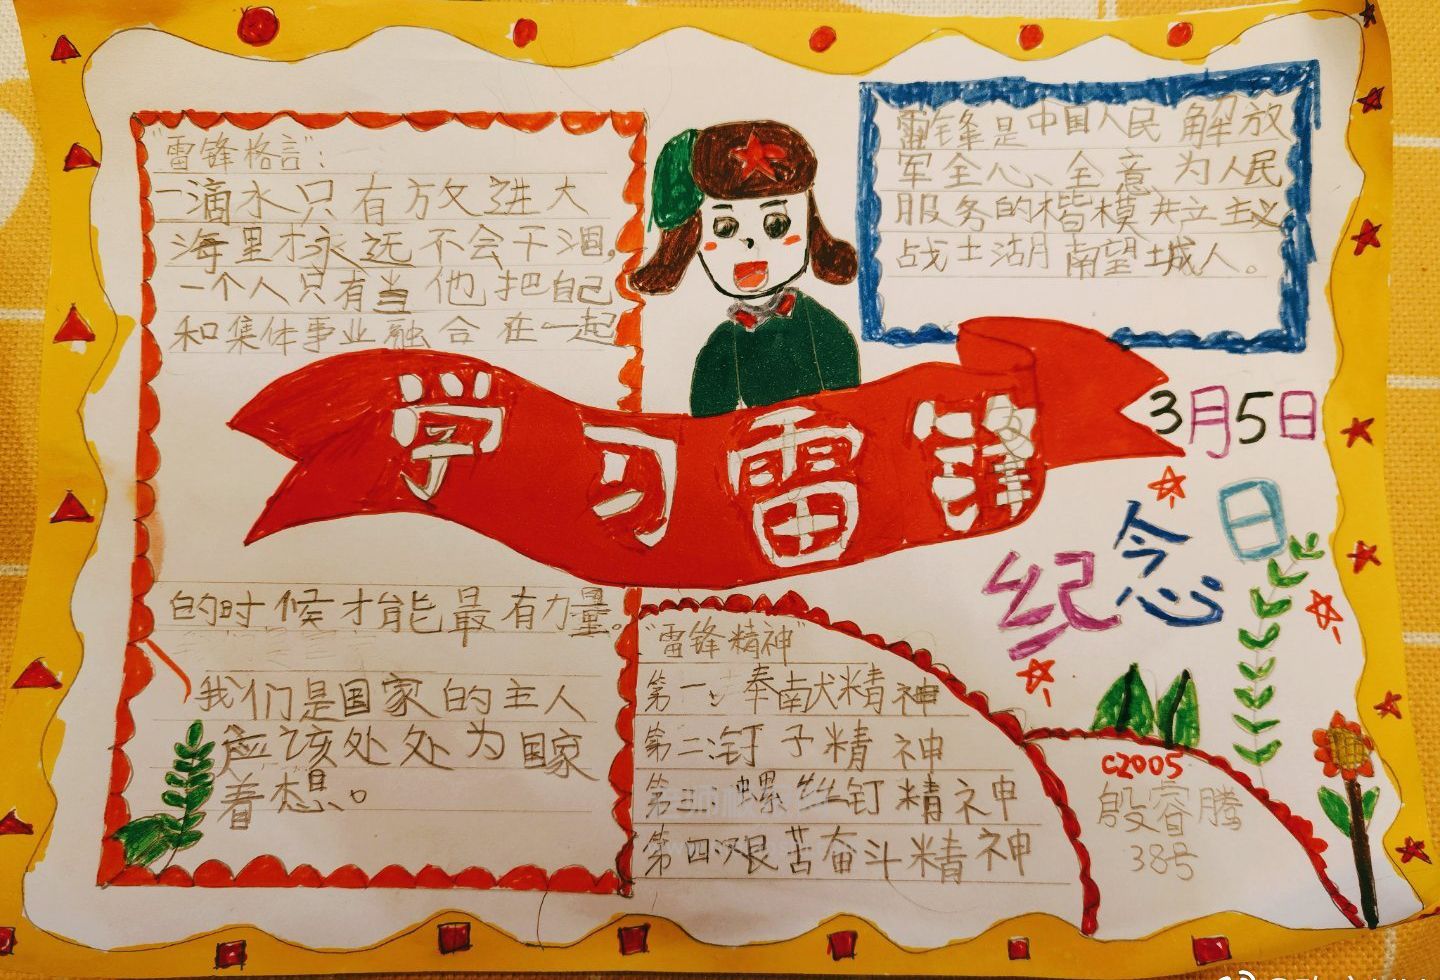 "雷锋格言":
一滴水只有放进大
海里才永远不会干涸,
一个人只有当他把自己
和集体事业融合在一起
的时候才能最有力量。
我们是国家的主人
应该处处为国家
着想。
雷锋是中国人民解放
军全心、全意为人民
服务的楷模共产主义
战士湖南望城人。
学习雷锋
3月5日
纪念日
"雷锋精神"
第一:奉献精神
第二:钉子精神
第三:螺丝钉精神
第四:艰苦奋斗精神
C2005
殷睿腾
38号